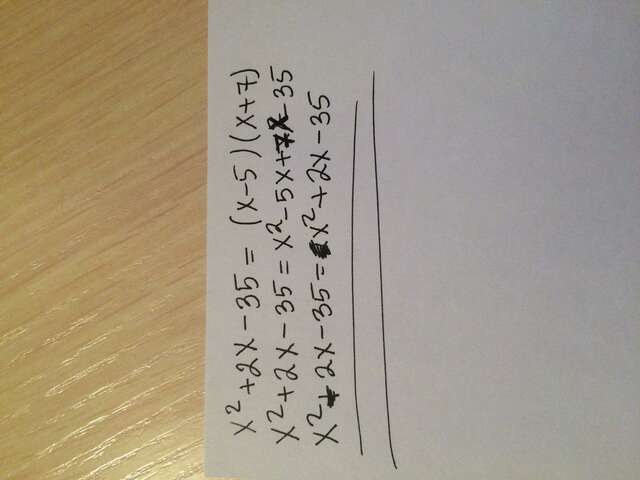 x²+2x-35 = (x-5)(x+7)
x²+2x-35 = x²-5x+7x-35
x²+2x-35 = x²+2x-35